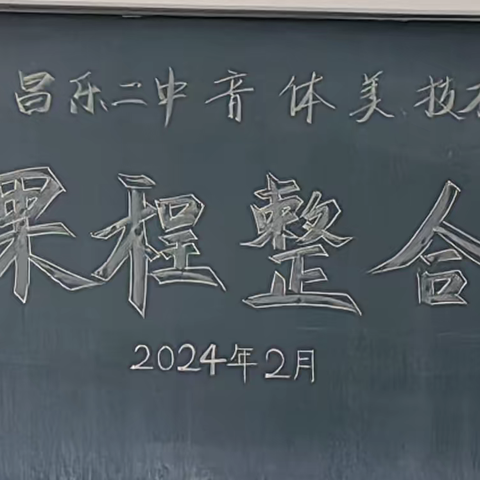 昌乐二中音体美、技术
课程整合
2024年2月